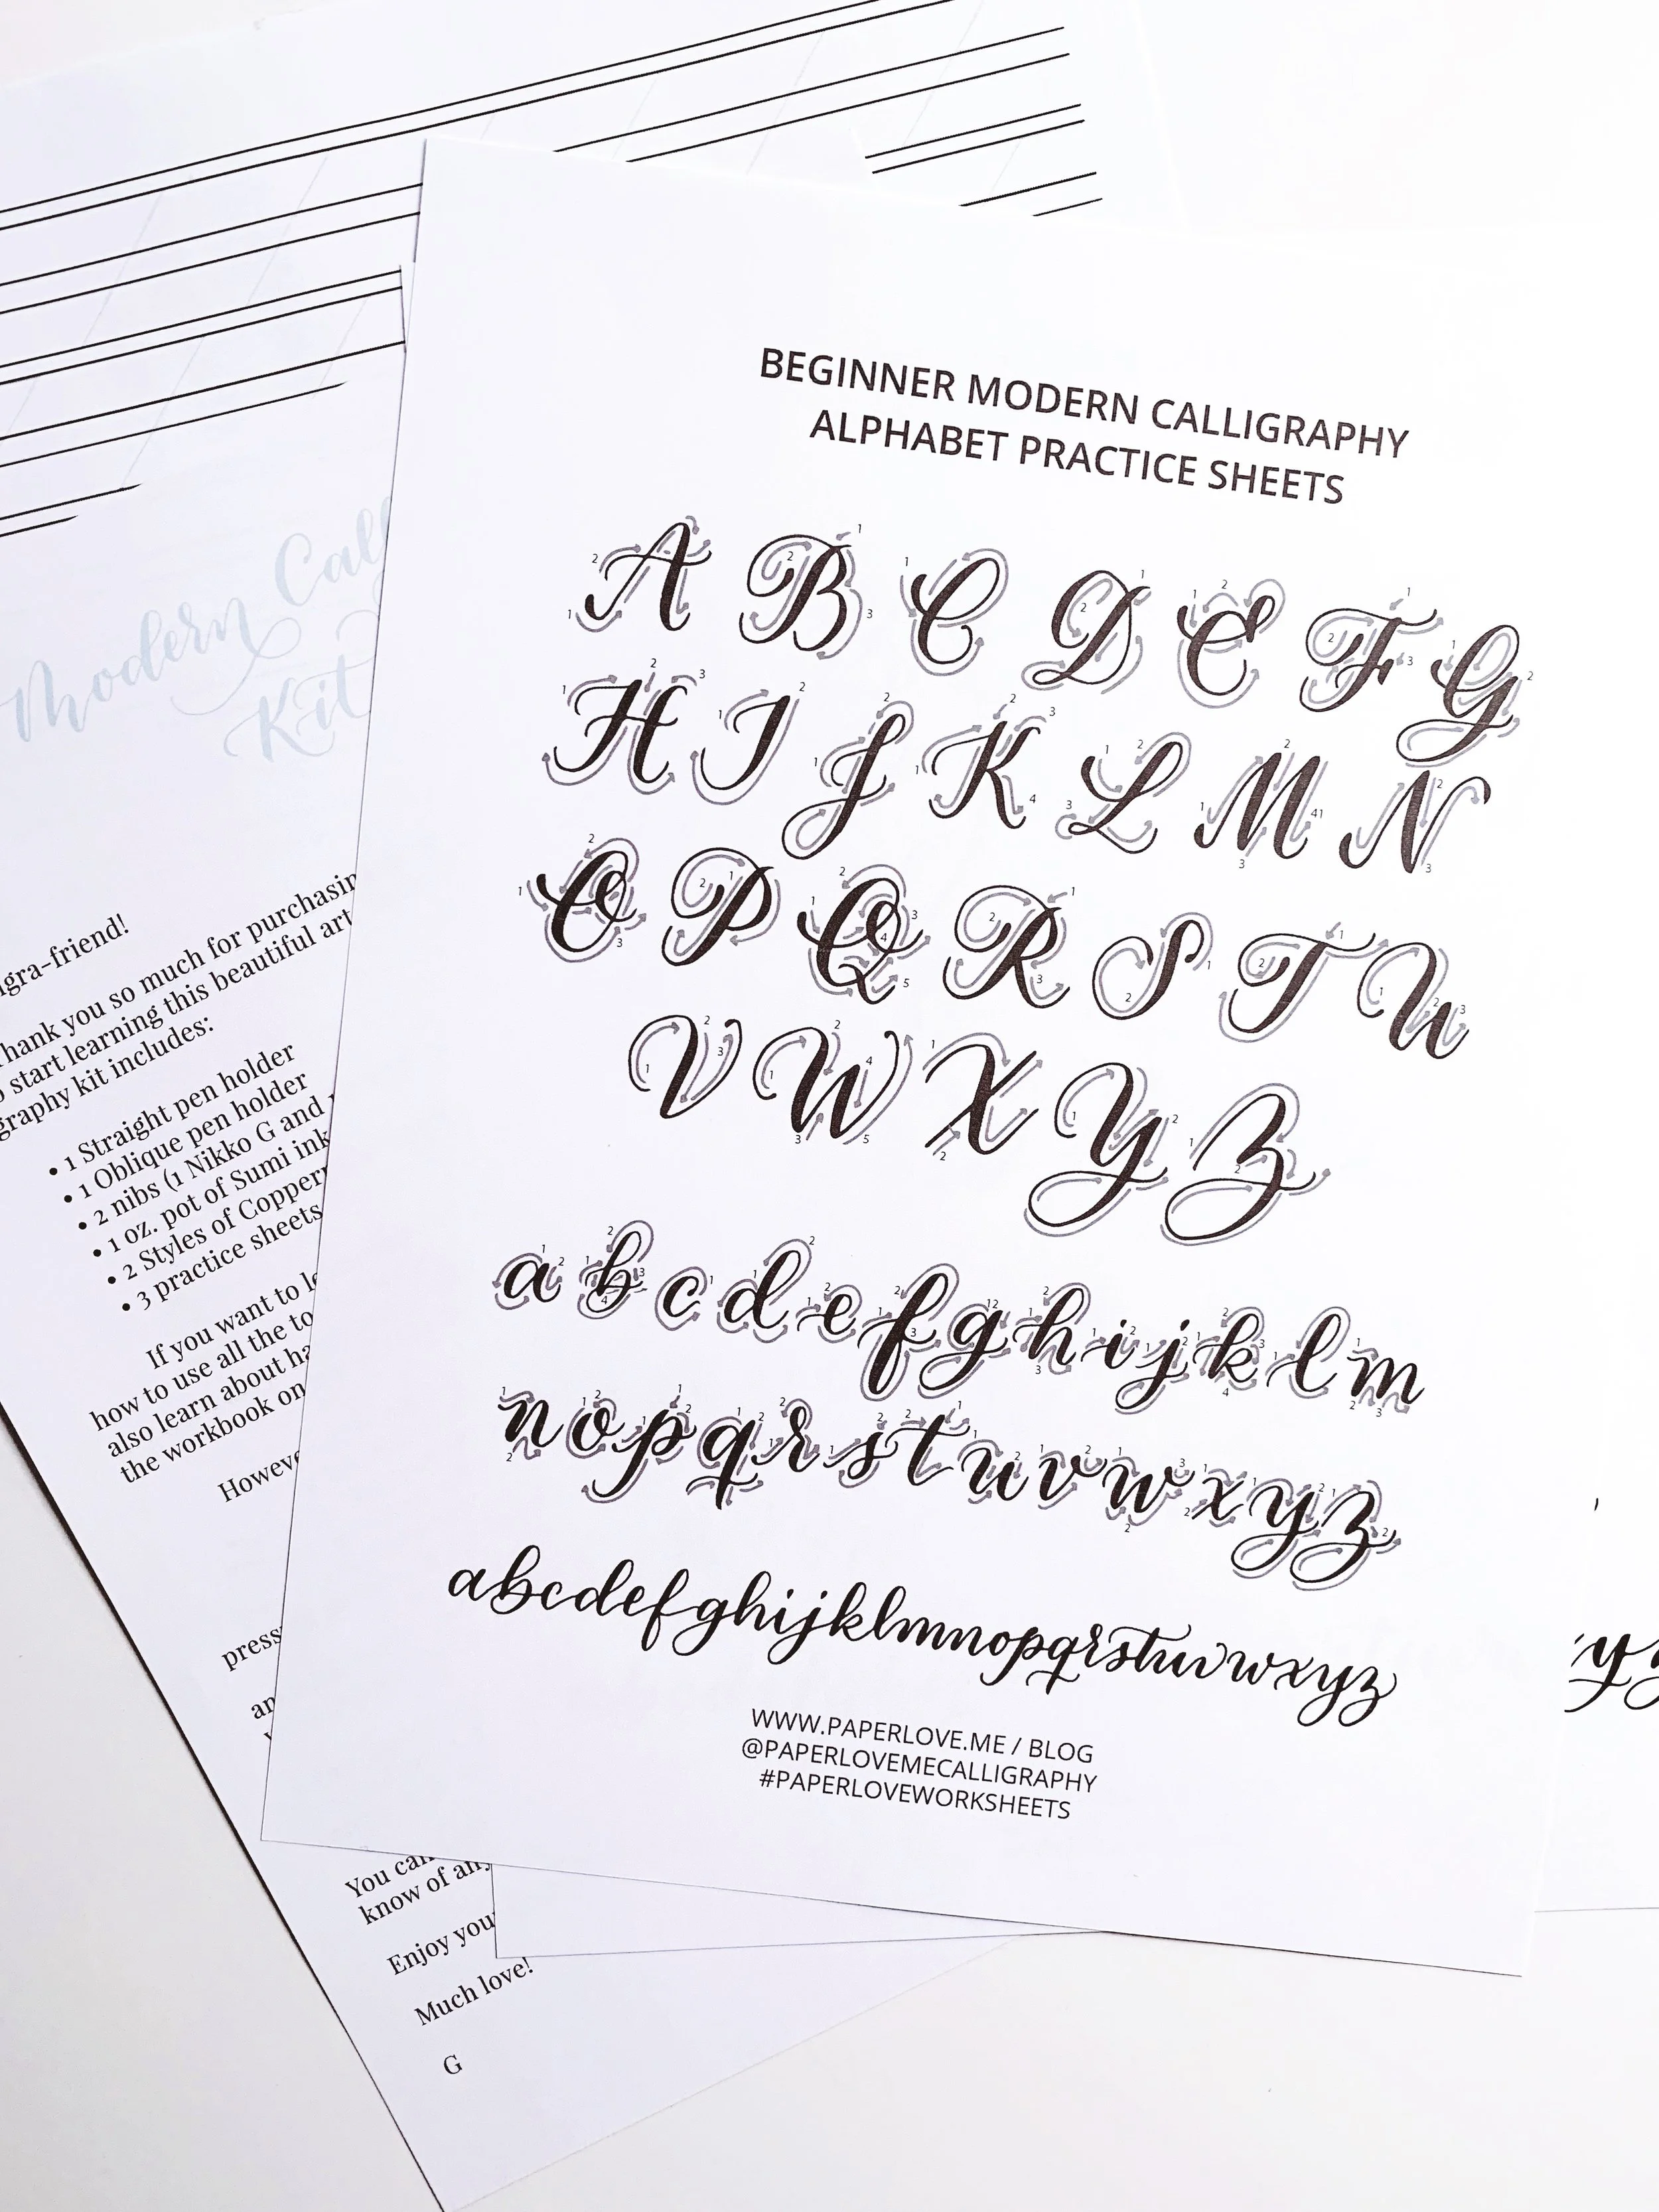 BEGINNER MODERN CALLIGRAPHY
ALPHABET PRACTICE SHEETS
A B C D E F G
H I J K L M N
O P Q R S T U
V W X Y Z
a b c d e f g h i j k l m
n o p q r s t u v w x y z
abcdefghijklmnopqrstuvwxyz
WWW.PAPERLOVE.ME / BLOG
@PAPERLOVEMECALLIGRAPHY
#PAPERLOVEWORKSHEETS
Modern
Kit
you so much for
start learning this beautiful art
kit includes:
• 1 Straight pen holder
• 1 Oblique pen holder
• 2 nibs (1 Nikko G and
• 1 oz. pot of Sumi ink
• 2 Styles of
• 3 practice sheets
If you want to
how to use all the
also learn about
the workbook on
You
know of
Enjoy
Much love!
G
yz